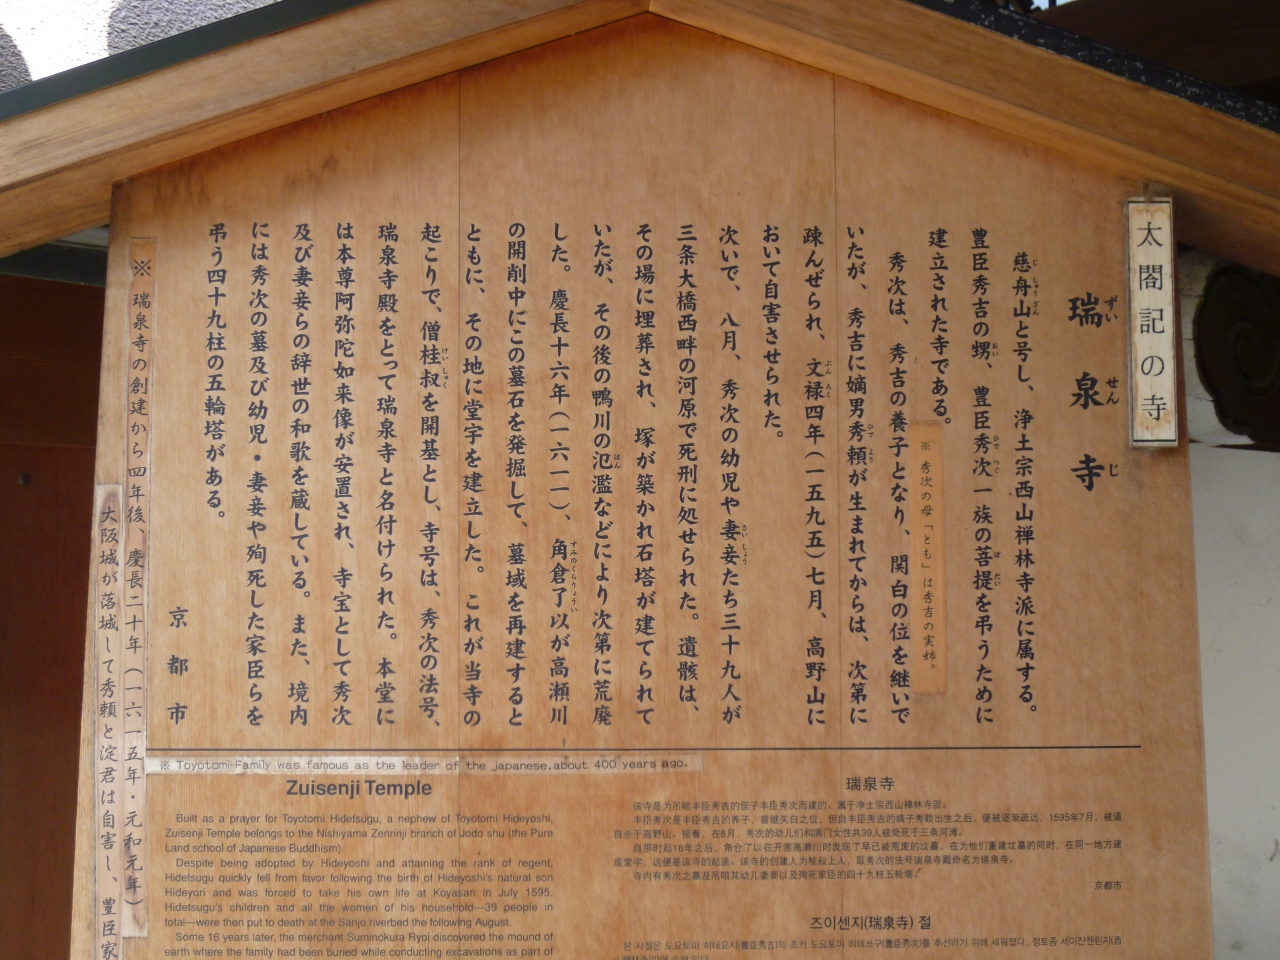 太閤記の寺
瑞泉寺
ずいせんじ
慈舟山と号し、浄土宗西山禅林寺派に属する。
豊臣秀吉の甥、豊臣秀次一族の菩提を弔うために
建立された寺である。
※ 秀次の母「とも」は秀吉の実姉。
秀次は、秀吉の養子となり、関白の位を継いで
いたが、秀吉に嫡男秀頼が生まれてからは、次第に
疎んぜられ、文禄四年(一五九五)七月、高野山に
おいて自害させられた。
次いで、八月、秀次の幼児や妻妾たち三十九人が
三条大橋西畔の河原で死刑に処せられた。遺骸は、
その場に埋葬され、塚が築かれ石塔が建てられて
いたが、その後の鴨川の氾濫などにより次第に荒廃
した。慶長十六年(一六一一)、角倉了以が高瀬川
の開削中にこの墓石を発掘して、墓域を再建すると
ともに、その地に堂宇を建立した。これが当寺の
起こりで、僧桂叔を開基とし、寺号は、秀次の法号、
瑞泉寺殿をとって瑞泉寺と名付けられた。本堂に
は本尊阿弥陀如来像が安置され、寺宝として秀次
及び妻妾らの辞世の和歌を蔵している。また、境内
には秀次の墓及び幼児・妻妾や殉死した家臣らを
弔う四十九柱の五輪塔がある。
京都市
※ 瑞泉寺の創建から四年後、慶長二十年(一六一五年・元和元年)
大阪城が落城して秀頼と淀君は自害し、豊臣家
※ Toyotomi-Family was famous as the leader of the japanese,about 400 years ago.
Zuisenji Temple
Built as a prayer for Toyotomi Hidetsugu, a nephew of Toyotomi Hideyoshi,
Zuisenji Temple belongs to the Nishiyama Zenrinji branch of Jodo shu (the Pure
Land school of Japanese Buddhism).
Despite being adopted by Hideyoshi and attaining the rank of regent,
Hidetsugu quickly fell from favor following the birth of Hideyoshi's natural son
Hideyori and was forced to take his own life at Koyasan in July 1595.
Hidetsugu's children and all the women of his household—39 people in
total—were then put to death at the Sanjo riverbed the following August.
Some 16 years later, the merchant Suminokura Ryoi discovered the mound of
earth where the family had been buried while conducting excavations as part of
瑞泉寺
该寺是为吊唁丰臣秀吉的侄子丰臣秀次而建的。属于净土宗西山禅林寺派。
丰臣秀次是丰臣秀吉的养子，曾继关白之位，但自丰臣秀吉的嫡子秀赖出生之后，便被逐渐疏远，1595年7月，被逼
自杀于高野山。接着，在8月，秀次的幼儿们和满门女性共39人被处死于三条河滩。
自那时起16年之后，角仓了以在开凿高濑川时发现了早已被荒废的坟墓，在为他们重建坟墓的同时，在同一地方建
成堂宇，这便是该寺的起源。该寺的创建人为桂叔上人，取秀次的法号瑞泉寺殿命名为瑞泉寺。
寺内有秀次之墓及吊唁其幼儿妻妾以及殉死家臣的四十九柱五轮塔。
京都市
즈이센지(瑞泉寺) 절
본 사찰은 도요토미 히데요시(豊臣秀吉)의 조카 도요토미 히데쓰구(豊臣秀次)를 추선하기 위해 세워졌다. 정토종 세이잔젠린지(西